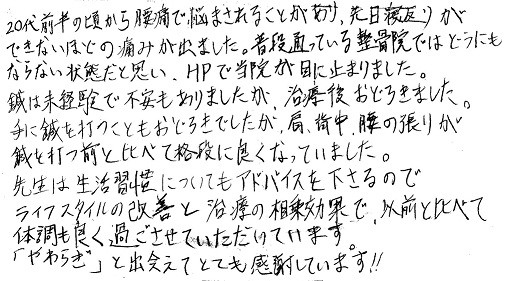 20代前半の頃から腰痛で悩まされることがあり、先日寝返りが
できないほどの痛みが出ました。普段通っている整骨院ではどうにも
ならない状態だと思い、HPで当院が目に止まりました。
鍼は未経験で不安もありましたが、治療後おどろきました。
手に鍼を打つこともおどろきでしたが、肩、背中、腰の張りが
鍼を打つ前と比べて格段に良くなっていました。
先生は生活習慣についてもアドバイスを下さるので
ライフスタイルの改善と治療の相乗効果で、以前と比べて
体調も良く過ごさせていただけています。
「やわらぎ」と出会えてとても感謝しています!!